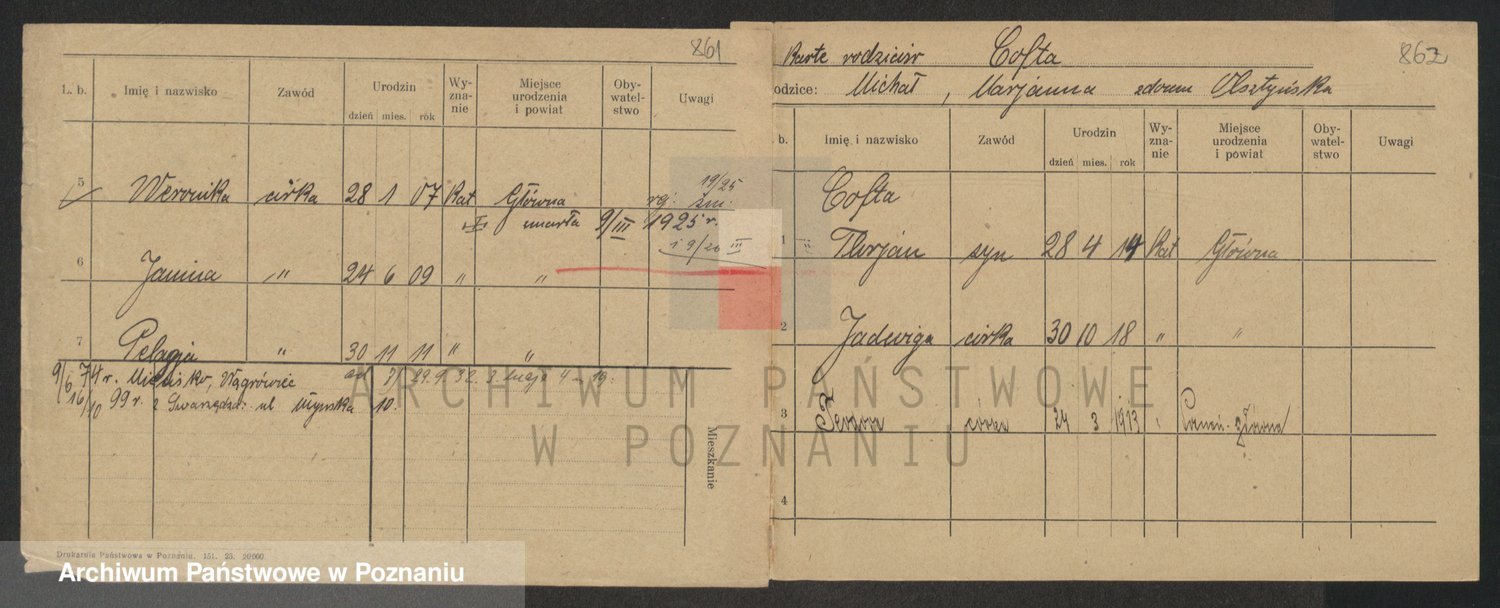 861
L. b. Imię i nazwisko Zawód Urodzin dzień mies. rok Wy-zna-nie Miejsce urodzenia i powiat Oby-watel-stwo Uwagi
5 Weronika córka 28 1 07 Kat Główna 19/25
umarła 9/III 1925 r.
i 9/20 III
6 Janina " 24 6 09 " "
7 Pelagja " 30 11 11 " "
74 r. Wągrówiec 29.9.32. 3 maja 4 - 19.
16/10 99 r. z ul 10.
Mieszkanie
Drukarnia Państwowa w Poznaniu. 151. 23. 20000
862
Karte rodziców Cofta
odzice: Michał, Marjanna zdomu Olsztyńska
b. Imię i nazwisko Zawód Urodzin dzień mies. rok Wy-zna-nie Miejsce urodzenia i powiat Oby-watel-stwo Uwagi
Cofta
1 Florjan syn 28 4 14 Kat Główna
2 Jadwiga córka 30 10 18 " "
3 córka 24 3 1913
4
ARCHIWUM PAŃSTWOWE
W POZNANIU
Archiwum Państwowe w Poznaniu